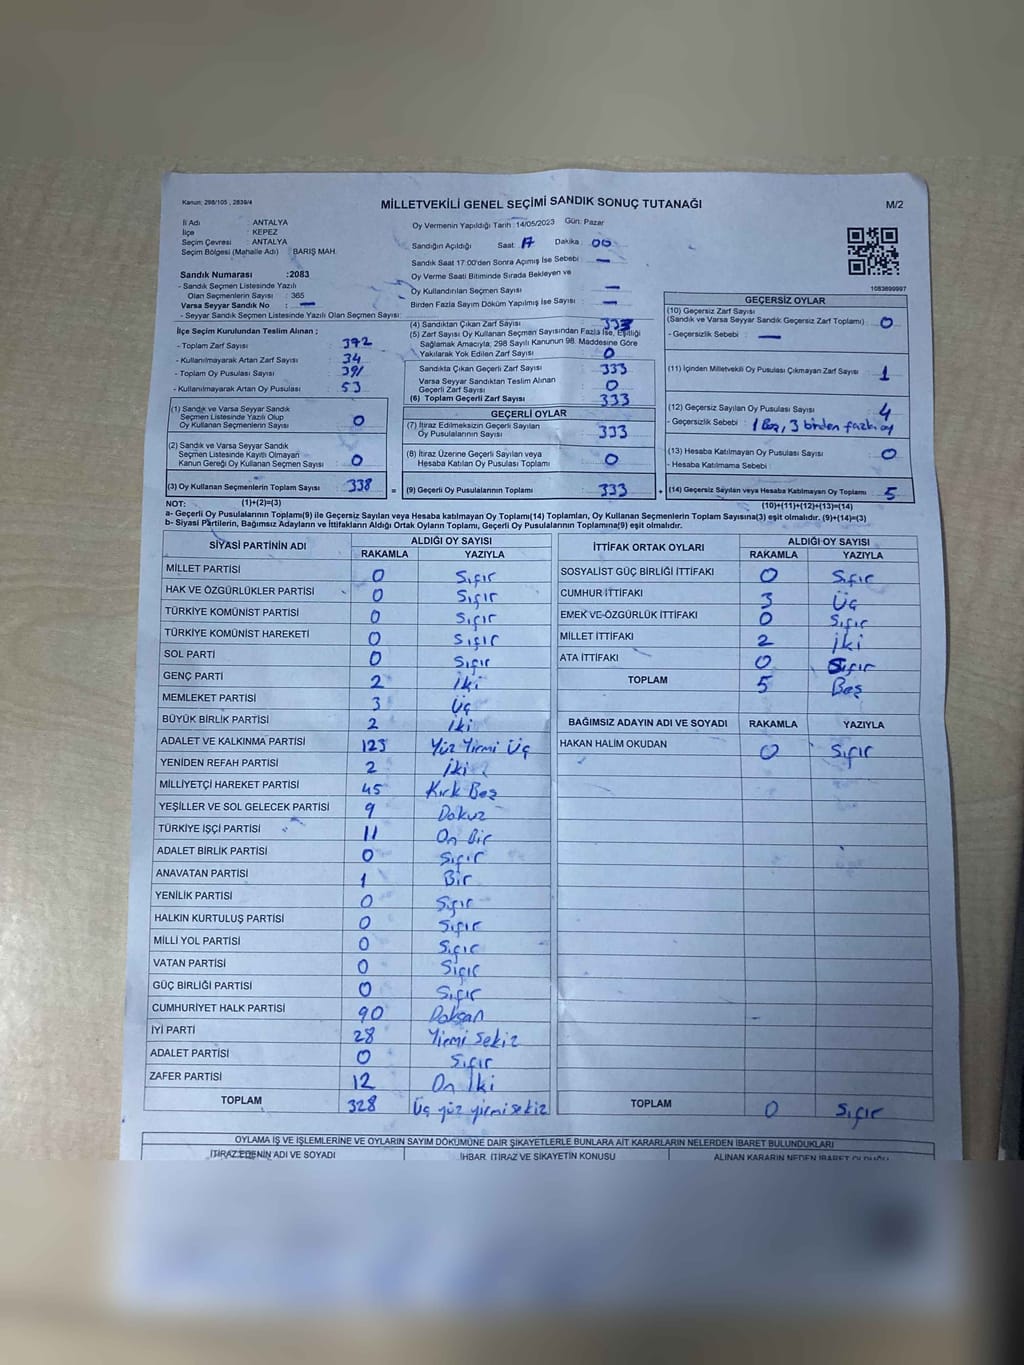 Kanun: 298/105 , 2839/4
MİLLETVEKİLİ GENEL SEÇİMİ SANDIK SONUÇ TUTANAĞI
M/2
İl Adı ANTALYA
İlçe : KEPEZ
Seçim Çevresi : ANTALYA
Seçim Bölgesi (Mahalle Adı) : BARIŞ MAH.
Sandık Numarası :2083
- Sandık Seçmen Listesinde Yazılı
Olan Seçmenlerin Sayısı : 365
Varsa Seyyar Sandık No : —
- Seyyar Sandık Seçmen Listesinde Yazılı Olan Seçmen Sayısı:
Oy Vermenin Yapıldığı Tarih :14/05/2023 Gün: Pazar
Sandığın Açıldığı Saat: 17 Dakika : 00
Sandık Saat 17:00'den Sonra Açımış İse Sebebi : —
Oy Verme Saati Bitiminde Sırada Bekleyen ve
Oy Kullandırılan Seçmen Sayısı : —
Birden Fazla Sayım Döküm Yapılmış İse Sayısı : —
1083899997
İlçe Seçim Kurulundan Teslim Alınan ;
- Toplam Zarf Sayısı : 372
- Kullanılmayarak Artan Zarf Sayısı : 34
- Toplam Oy Pusulası Sayısı : 391
- Kullanılmayarak Artan Oy Pusulası : 53
(1) Sandık ve Varsa Seyyar Sandık
Seçmen Listesinde Yazılı Olup
Oy Kullanan Seçmenlerin Sayısı : 0
(2) Sandık ve Varsa Seyyar Sandık
Seçmen Listesinde Kayıtlı Olmayan
Kanun Gereği Oy Kullanan Seçmen Sayısı : 0
(3) Oy Kullanan Seçmenlerin Toplam Sayısı : 338
(4) Sandıktan Çıkan Zarf Sayısı : 333
(5) Zarf Sayısı Oy Kullanan Seçmen Sayısından Fazla İse, Eşitliği
Sağlamak Amacıyla; 298 Sayılı Kanunun 98. Maddesine Göre
Yakılarak Yok Edilen Zarf Sayısı : 0
Sandıkta Çıkan Geçerli Zarf Sayısı : 333
Varsa Seyyar Sandıktan Teslim Alınan
Geçerli Zarf Sayısı : 0
(6) Toplam Geçerli Zarf Sayısı : 333
GEÇERLİ OYLAR
(7) İtiraz Edilmeksizin Geçerli Sayılan
Oy Pusulalarının Sayısı : 333
(8) İtiraz Üzerine Geçerli Sayılan veya
Hesaba Katılan Oy Pusulası Toplamı : 0
= (9) Geçerli Oy Pusulalarının Toplamı : 333
GEÇERSİZ OYLAR
(10) Geçersiz Zarf Sayısı
(Sandık ve Varsa Seyyar Sandık Geçersiz Zarf Toplamı) : 0
- Geçersizlik Sebebi : —
(11) İçinden Milletvekili Oy Pusulası Çıkmayan Zarf Sayısı : 1
(12) Geçersiz Sayılan Oy Pusulası Sayısı : 4
- Geçersizlik Sebebi : 1 Boş, 3 birden fazla oy
(13) Hesaba Katılmayan Oy Pusulası Sayısı : 0
- Hesaba Katılmama Sebebi :
+ (14) Geçersiz Sayılan veya Hesaba Katılmayan Oy Toplamı : 5
NOT: (1)+(2)=(3) (10)+(11)+(12)+(13)=(14)
a- Geçerli Oy Pusulalarının Toplamı(9) ile Geçersiz Sayılan veya Hesaba Katılmayan Oy Toplamı(14) Toplamları, Oy Kullanan Seçmenlerin Toplam Sayısına(3) eşit olmalıdır. (9)+(14)=(3)
b- Siyasi Partilerin, Bağımsız Adayların ve İttifakların Aldığı Ortak Oyların Toplamı, Geçerli Oy Pusulalarının Toplamına(9) eşit olmalıdır.
SİYASİ PARTİNİN ADI ALDIĞI OY SAYISI
RAKAMLA YAZIYLA
MİLLET PARTİSİ 0 Sıfır
HAK VE ÖZGÜRLÜKLER PARTİSİ 0 Sıfır
TÜRKİYE KOMÜNİST PARTİSİ 0 Sıfır
TÜRKİYE KOMÜNİST HAREKETİ 0 Sıfır
SOL PARTİ 0 Sıfır
GENÇ PARTİ 2 İki
MEMLEKET PARTİSİ 3 Üç
BÜYÜK BİRLİK PARTİSİ 2 İki
ADALET VE KALKINMA PARTİSİ 123 Yüz Yirmi Üç
YENİDEN REFAH PARTİSİ 2 İki
MİLLİYETÇİ HAREKET PARTİSİ 45 Kırk Beş
YEŞİLLER VE SOL GELECEK PARTİSİ 9 Dokuz
TÜRKİYE İŞÇİ PARTİSİ 11 On Bir
ADALET BİRLİK PARTİSİ 0 Sıfır
ANAVATAN PARTİSİ 1 Bir
YENİLİK PARTİSİ 0 Sıfır
HALKIN KURTULUŞ PARTİSİ 0 Sıfır
MİLLİ YOL PARTİSİ 0 Sıfır
VATAN PARTİSİ 0 Sıfır
GÜÇ BİRLİĞİ PARTİSİ 0 Sıfır
CUMHURİYET HALK PARTİSİ 90 Doksan
İYİ PARTİ 28 Yirmi Sekiz
ADALET PARTİSİ 0 Sıfır
ZAFER PARTİSİ 12 On İki
TOPLAM 328 Üç yüz yirmi sekiz
İTTİFAK ORTAK OYLARI ALDIĞI OY SAYISI
RAKAMLA YAZIYLA
SOSYALİST GÜÇ BİRLİĞİ İTTİFAKI 0 Sıfır
CUMHUR İTTİFAKI 3 Üç
EMEK VE ÖZGÜRLÜK İTTİFAKI 0 Sıfır
MİLLET İTTİFAKI 2 İki
ATA İTTİFAKI 0 Sıfır
TOPLAM 5 Beş
BAĞIMSIZ ADAYIN ADI VE SOYADI RAKAMLA YAZIYLA
HAKAN HALİM OKUDAN 0 Sıfır
TOPLAM 0 Sıfır
OYLAMA İŞ VE İŞLEMLERİNE VE OYLARIN SAYIM DÖKÜMÜNE DAİR ŞİKAYETLERLE BUNLARA AİT KARARLARIN NELERDEN İBARET BULUNDUKLARI
İTİRAZ EDENİN ADI VE SOYADI İHBAR, İTİRAZ VE ŞİKAYETİN KONUSU ALINAN KARARIN NEDEN İBARET OLDUĞU